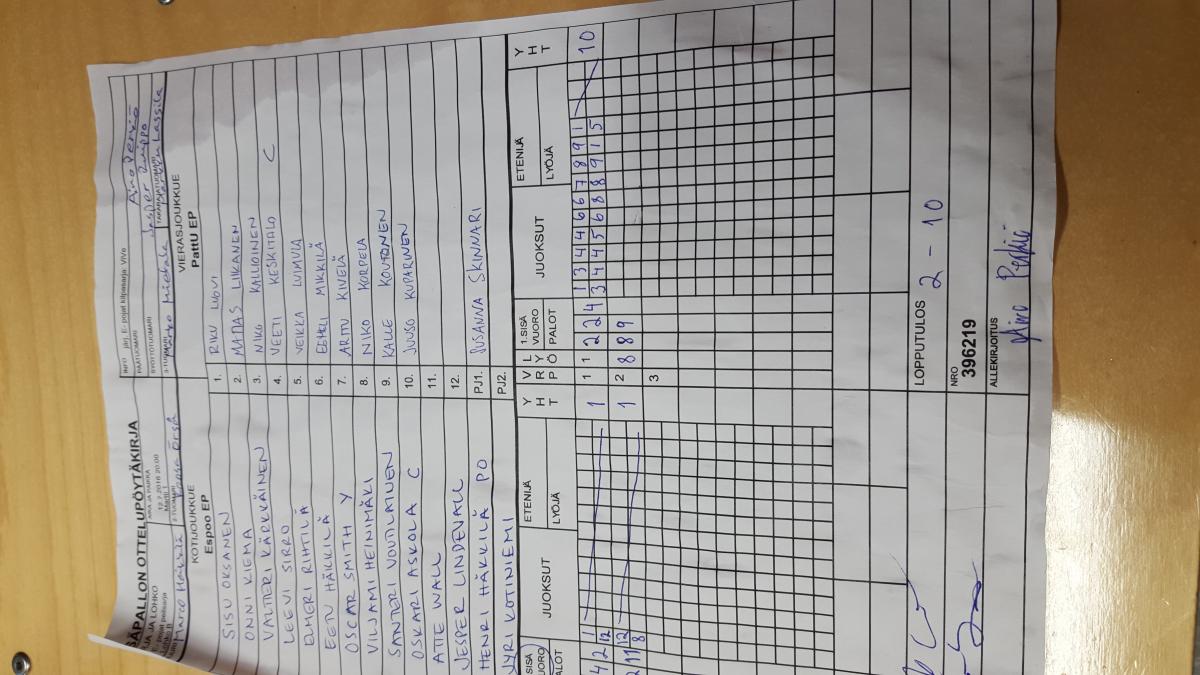 SÄPALLON OTTELUPÖYTÄKIRJA
AIKA JA PAIKKA
12.7.2016 20:00
KOTIJOUKKUE
Espoo EP
SISU OKSANEN
ONNI KIEMA
VALTTERI KÄRKKÄINEN
LEEVI SIRRO
ELMERI RIHTILÄ
EETU HÄKKILÄ
OSCAR SMITH Y
VILJAMI HEINIMÄKI
SANTERI VOUTILAINEN
OSKARI ASKOLA C
ATTE WALL
JESPER LINDEVALL
HENRI HÄKKILÄ PO
JYRI KOTINIEMI
INFO järj. E- pojat kilpasarja: ViVe
PÄÄTUOMARI Aino Perkiö
SYÖTTÖTUOMARI
2-TUOMARI
3-TUOMARI
TAKARAJATUOMARI
VIERASJOUKKUE
PattU EP
1. RIKU LUOVI
2. MATIAS LIIKANEN
3. NIKO KALLIOINEN
4. VEETI KESKITALO C
5. VEIKKA LUIMULA
6. EEMELI MIKKILÄ
7. ARTTU KIVELÄ
8. NIKO KORPELA
9. KALLE KOUTONEN
10. JUUSO KUPARINEN
11.
12.
PJ1. SUSANNA SKINNARI
PJ2.
SISÄ VUORO PALOT JUOKSUT ETENIJÄ LYÖJÄ YHT
4 2 1 12 1
2 11 12 8 1
VRP LYÖ 1.SISÄ VUORO PALOT JUOKSUT ETENIJÄ LYÖJÄ YHT
1 1 2 2 4 1 3 4 4 6 6 7 8 9 1 10
3 4 4 5 6 8 8 9 1 5
2 8 8 8 9
3
LOPPUTULOS 2 - 10
NRO
396219
ALLEKIRJOITUS
Aino Perkiö